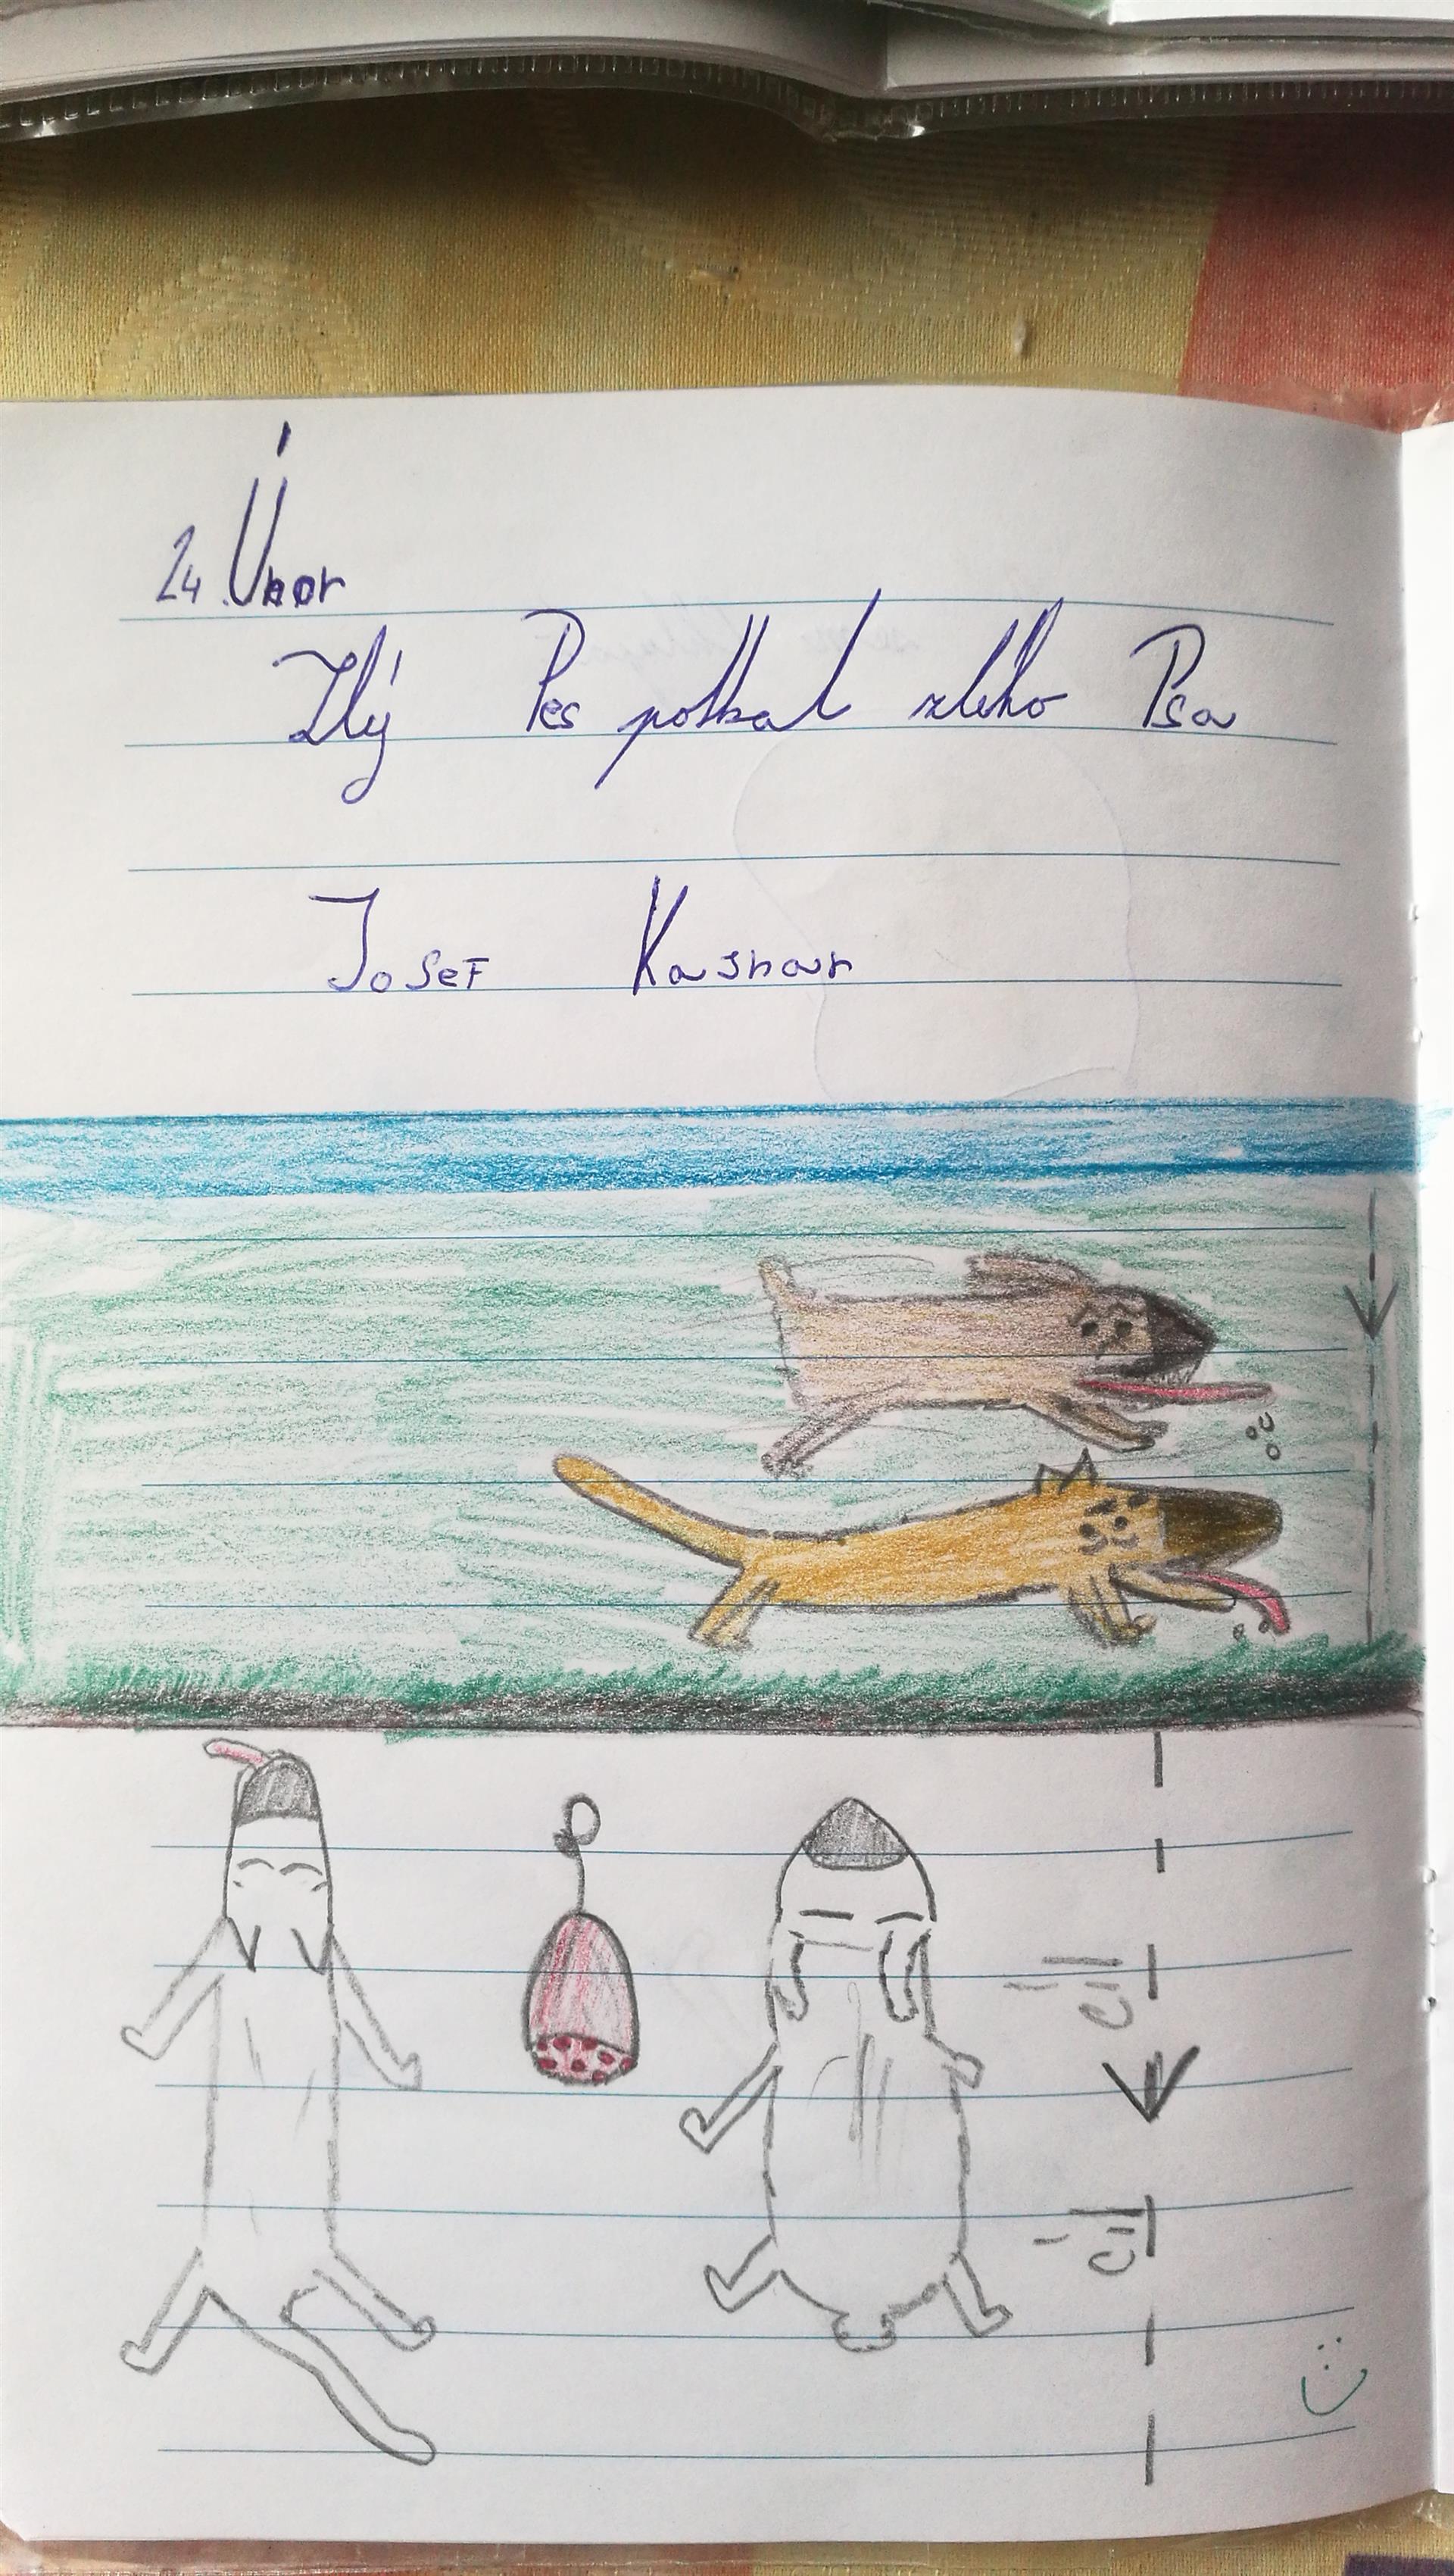 24. Únor
Zlý Pes potkal zlého Psa
Josef Kašpar